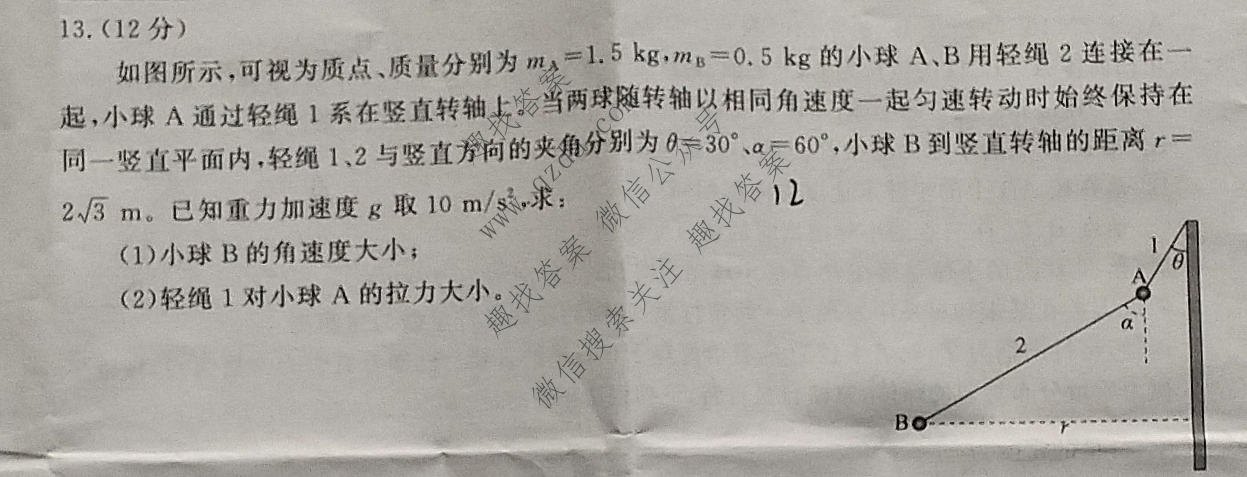 13.(12分)
如图所示,可视为质点、质量分别为 m_A=1.5 kg,m_B=0.5 kg 的小球 A、B 用轻绳 2 连接在一
起,小球 A 通过轻绳 1 系在竖直转轴上。当两球随转轴以相同角速度一起匀速转动时始终保持在
同一竖直平面内,轻绳 1、2 与竖直方向的夹角分别为 θ=30°、α=60°,小球 B 到竖直转轴的距离 r=
2√3 m。已知重力加速度 g 取 10 m/s²,求:
12
(1)小球 B 的角速度大小;
(2)轻绳 1 对小球 A 的拉力大小。
1
θ
A
α
2
B
r
趣找答案
微信公众号
趣找答案
微信搜索关注 趣找答案